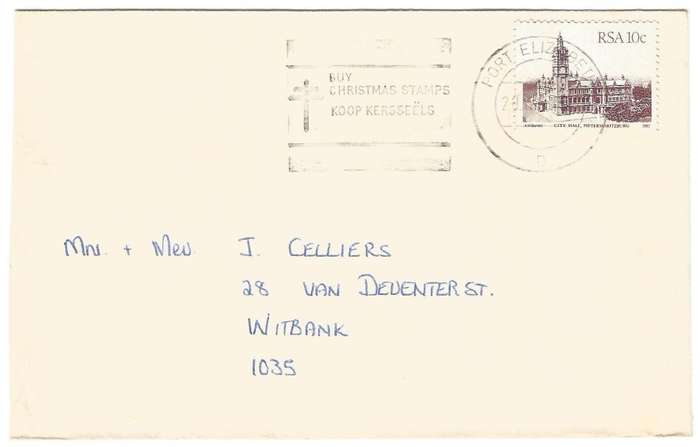 RSA 10c
CITY HALL, PIETERMARITZBURG
PORT ELIZABETH
D
BUY
CHRISTMAS STAMPS
KOOP KERSSEËLS
Mnr. + Mev. J. CELLIERS
28 VAN DEVENTER ST.
WITBANK
1035